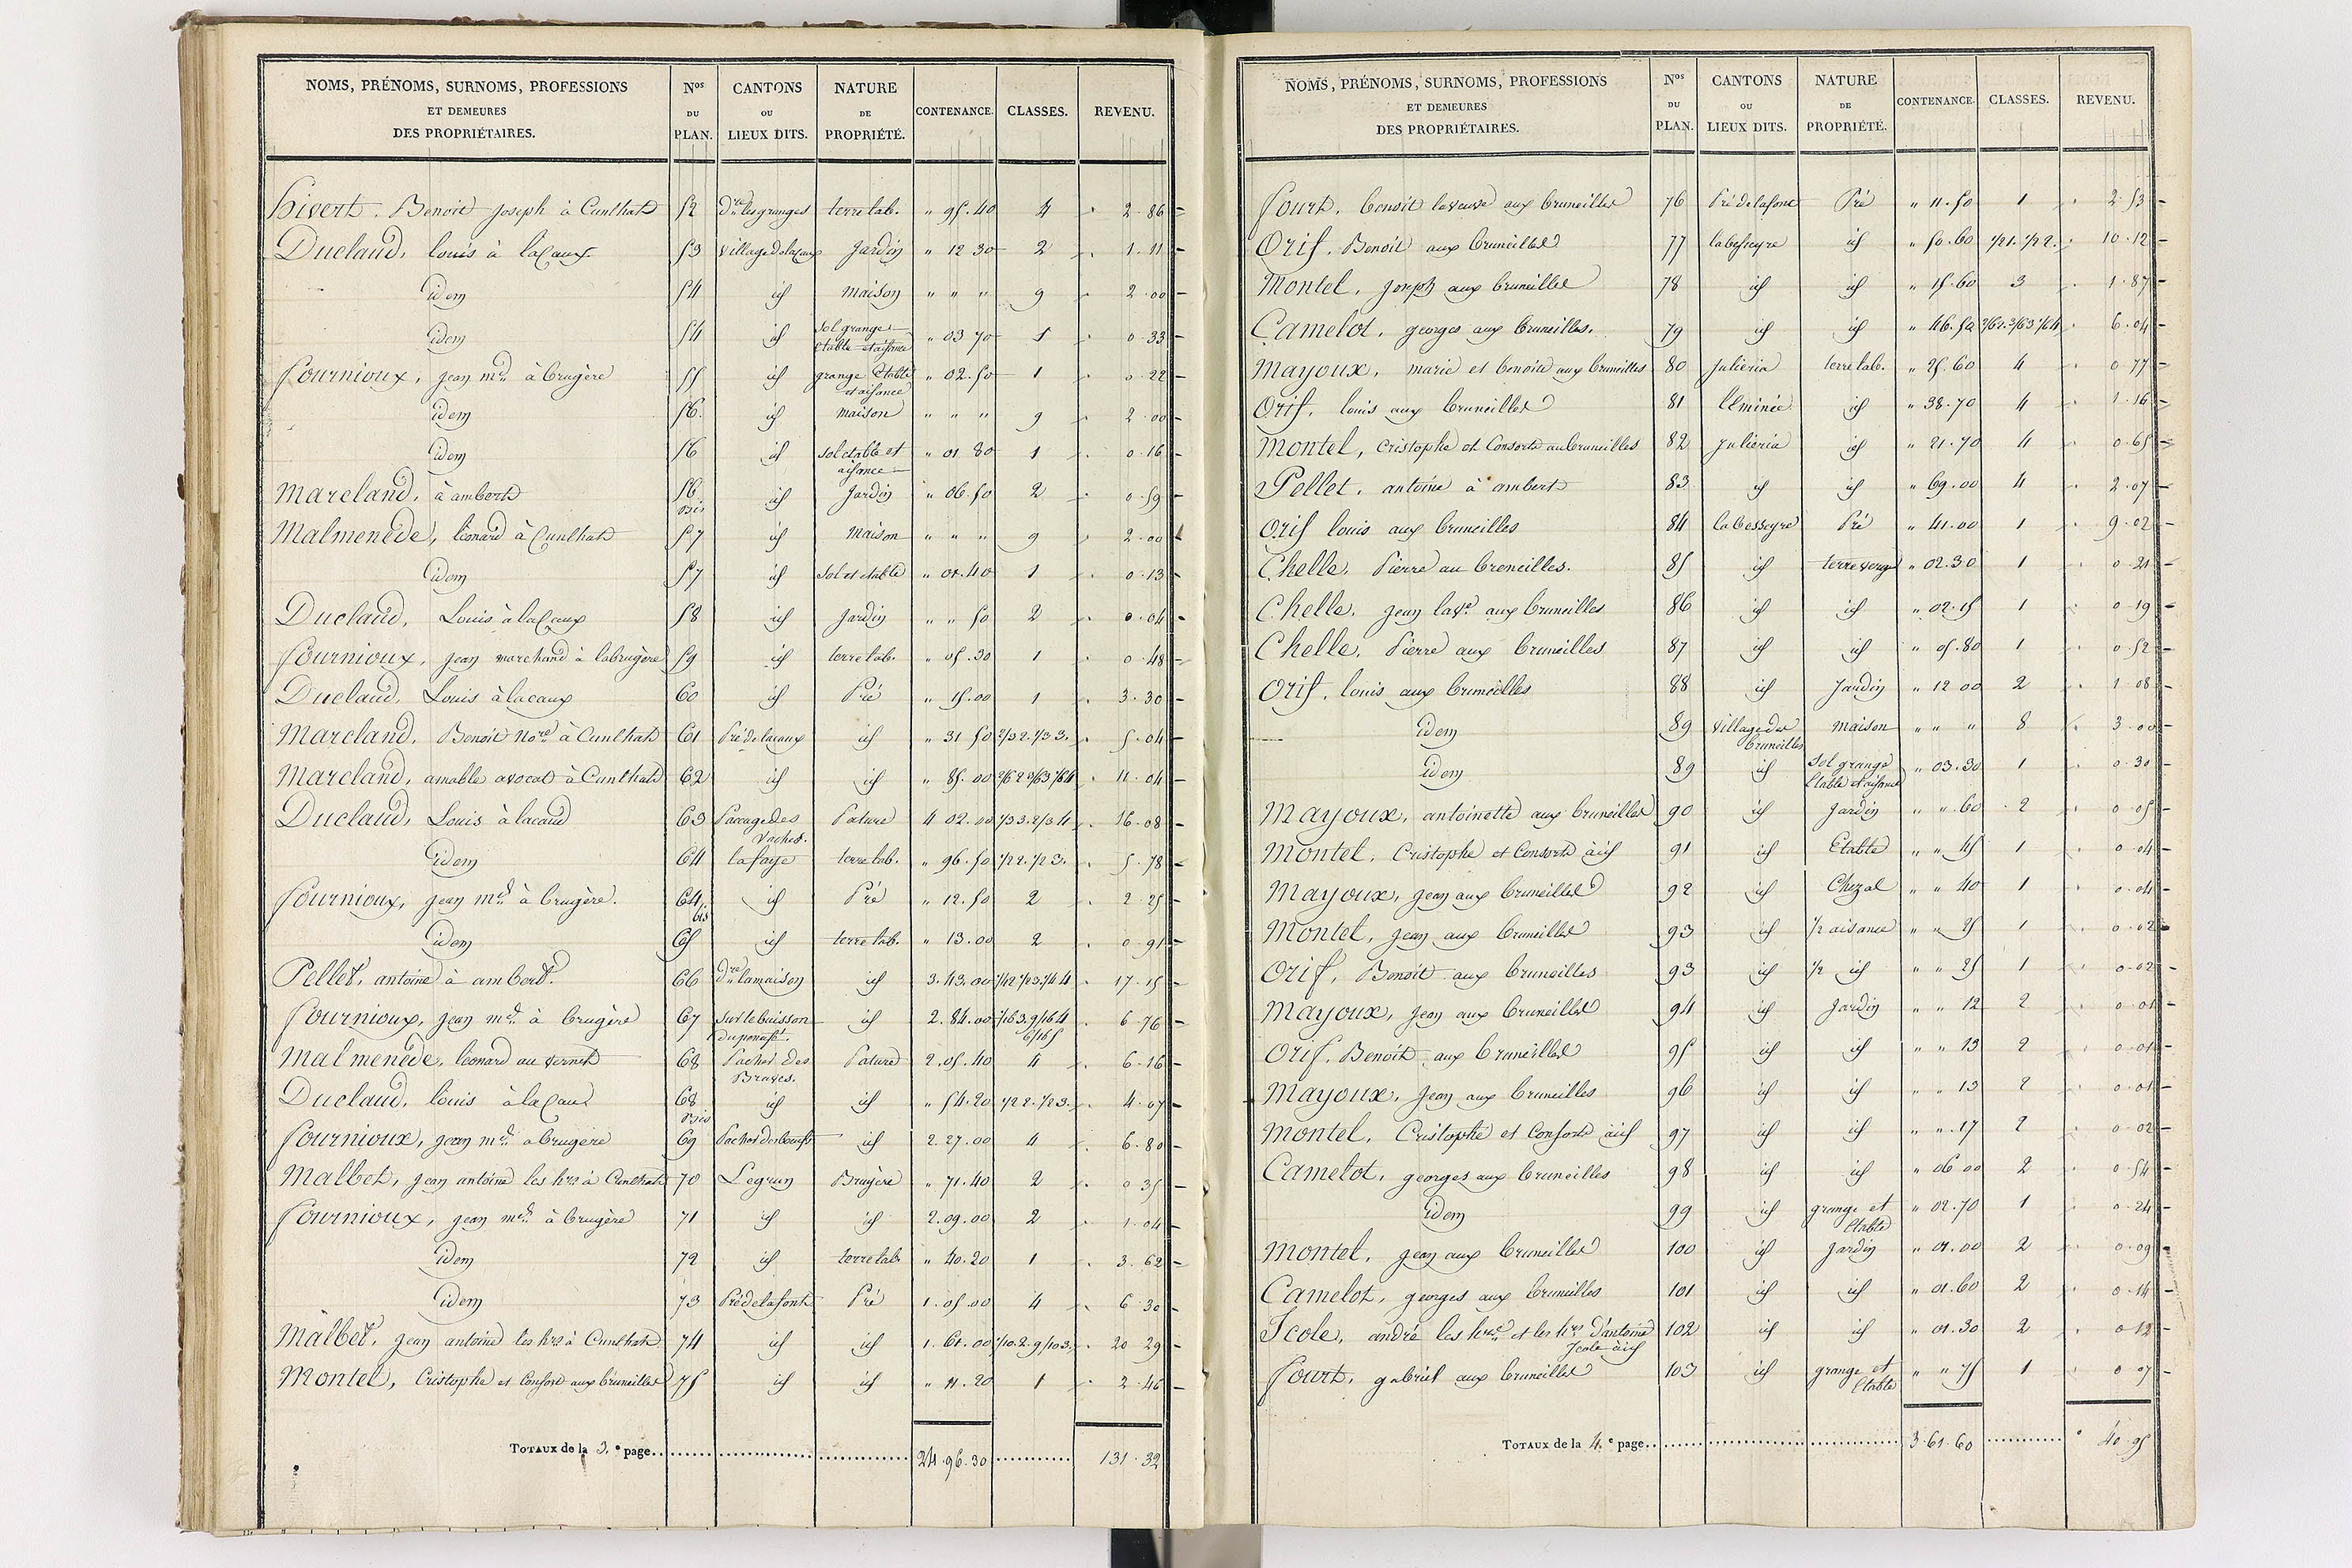 NOMS, PRÉNOMS, SURNOMS, PROFESSIONS ET DEMEURES DES PROPRIÉTAIRES. Nos DU PLAN. CANTONS OU LIEUX DITS. NATURE DE PROPRIÉTÉ. CONTENANCE. CLASSES. REVENU.
hivert. Benoit joseph à Cunlhat 52 dre. les granges terre lab. " 95.40 4 2.86
Duclaud, louis à laCaux 53 village delacaux Jardin " 12 30 2 1.11
idem 54 id maison " " " 9 2.00
idem 54 id Sol grange Etable et aisance " 03 70 1 0.33
fournioux, jean md. à brugère 55 id grange Etable et aisance " 02.50 1 0.22
idem 56. id maison " " " 9 2.00
idem 56 id Sol etable et aisance " 01 80 1 0.16
Marcland, à ambert 56 bis id Jardin " 06.50 2 0.59
Malmenède, léonard à Cunlhat 57 id Maison " " " 9 2.00
idem 57 id Sol et etable " 01.40 1 0.13
Duclaud, Louis à laCaux 58 id Jardin " " 50 2 0.04
fournioux, jean marchand à labrugère 59 id terre lab. " 05.30 1 0.48
Duclaud, Louis à lacaux 60 id Pré " 15.00 1 3.30
Marcland, Benoit nore. à Cunlhat 61 Pré delacaux id " 31 50 2/3 2. 1/3 3. 5.04
Marcland, amable avocat à Cunlhat 62 id id " 85.00 2/6 2 3/6 3 1/6 4 11.04
Duclaud, Louis à lacaud 63 Pacage des vaches. Pature 4 02.00 1/3 3. 2/3 4 16.08
idem 64 la faye terre lab. " 96.50 1/2 2. 1/2 3. 5.78
fournioux, jean md à brugère. 64 bis id Pré " 12.50 2 2.25
idem 65 id terre lab. " 13.00 2 0.91
Pellet, antoine à ambert. 66 dre. lamaison id 3.43.00 1/4 2 1/4 3. 1/4 4 17.15
fournioux, jean md. à brugère 67 Sur le buisson id 2.84.00 1/16 3. 9/16 4 6/16 5 6 76
Malmenède, léonard au vernet 68 Pacher des Braves. Pature 2.05.40 4 6.16
Duclaud, louis à laCaud 68 bis id id " 54.20 1/2 2. 1/2 3. 4.07
fournioux, jean md. à brugère 69 Pacher des bœufs id 2.27.00 4 6.80
Malbet, jean antoine les hrs à Cunlhat 70 Legrun Bruyère " 71.40 2 0 35
fournioux, jean md. à brugère 71 id id 2.09.00 2 1.04
idem 72 id terre lab. " 40.20 1 3.62
idem 73 Pré de la font Pré 1.05.00 4 6 30
Malbet, jean antoine les hrs à Cunlhat 74 id id 1.61.00 1/10 2. 9/10 3. 20 29
Montel, Cristophe et Consort aux bruneilles 75 id id " 11.20 1 2.46
TOTAUX de la 3.e page 24.96.30 131.32
NOMS, PRÉNOMS, SURNOMS, PROFESSIONS ET DEMEURES DES PROPRIÉTAIRES. Nos DU PLAN. CANTONS OU LIEUX DITS. NATURE DE PROPRIÉTÉ. CONTENANCE. CLASSES. REVENU.
fourt, benoit laveuve aux bruneilles 76 Pré de la font Pré " 11.50 1 2.53
Orif, Benoit aux bruneilles 77 labesseyre id " 50.60 1/2 1. 1/2 2. 10.12
Montel, joseph aux bruneilles 78 id id " 15.60 3 1.87
Camelot, georges aux bruneilles. 79 id id " 46.50 2/6 2. 3/6 3 1/6 4 6.04
Mayoux, marie et benoite aux bruneilles 80 julieria terre lab. " 25.60 4 0 77
Orif, louis aux bruneilles 81 l'Eminée id " 38.70 4 1.16
Montel, cristophe et Consorts aux bruneilles 82 julieria id " 21.70 4 0.65
Pellet, antoine à ambert 83 id id " 69.00 4 2.07
Orif louis aux bruneilles 84 labesseyre Pré " 41.00 1 9.02
Chelle, Pierre au breneilles. 85 id terre verger " 02.30 1 0.21
Chelle, jean lave. aux bruneilles 86 id id " 02.15 1 0 19
Chelle, Pierre aux bruneilles 87 id id " 05.80 1 0.52
Orif, louis aux bruneilles 88 id Jardin " 12 00 2 1 08
idem 89 village des bruneilles Maison " " " 8 3.00
idem 89 id Sol grange Etable et aisance " 03.30 1 0.30
Mayoux, antoinette aux bruneilles 90 id Jardin " " 60 2 0 05
Montel, Cristophe et Consorts à id 91 id Etable " " 45 1 0 04
Mayoux, jean aux bruneilles 92 id Chezal " " 40 1 0.04
Montel, jean aux bruneilles 93 id 1/2 aisance " " 25 1 0.02
Orif, Benoit aux bruneilles 93 id 1/2 id " " 25 1 0.02
Mayoux, jean aux bruneilles 94 id Jardin " " 12 2 0.01
Orif, Benoit aux bruneilles 95 id id " " 13 2 0.01
Mayoux, jean aux bruneilles 96 id id " " 13 2 0.01
Montel, Cristophe et Consorts à id 97 id id " " 17 2 0 02
Camelot, georges aux bruneilles 98 id id " 06 00 2 0.54
idem 99 id grange et Etable " 02.70 1 0.24
Montel, jean aux bruneilles 100 id Jardin " 01.00 2 0.09
Camelot, georges aux bruneilles 101 id id " 01.60 2 0.14
Icole, andré les hrs. et les hrs d'antoine Icole à id 102 id id " 01.30 2 0 12
fourt, gabriel aux bruneilles 103 id grange et Etable " " 75 1 0 07
TOTAUX de la 4.e page 3.61.60 40.95